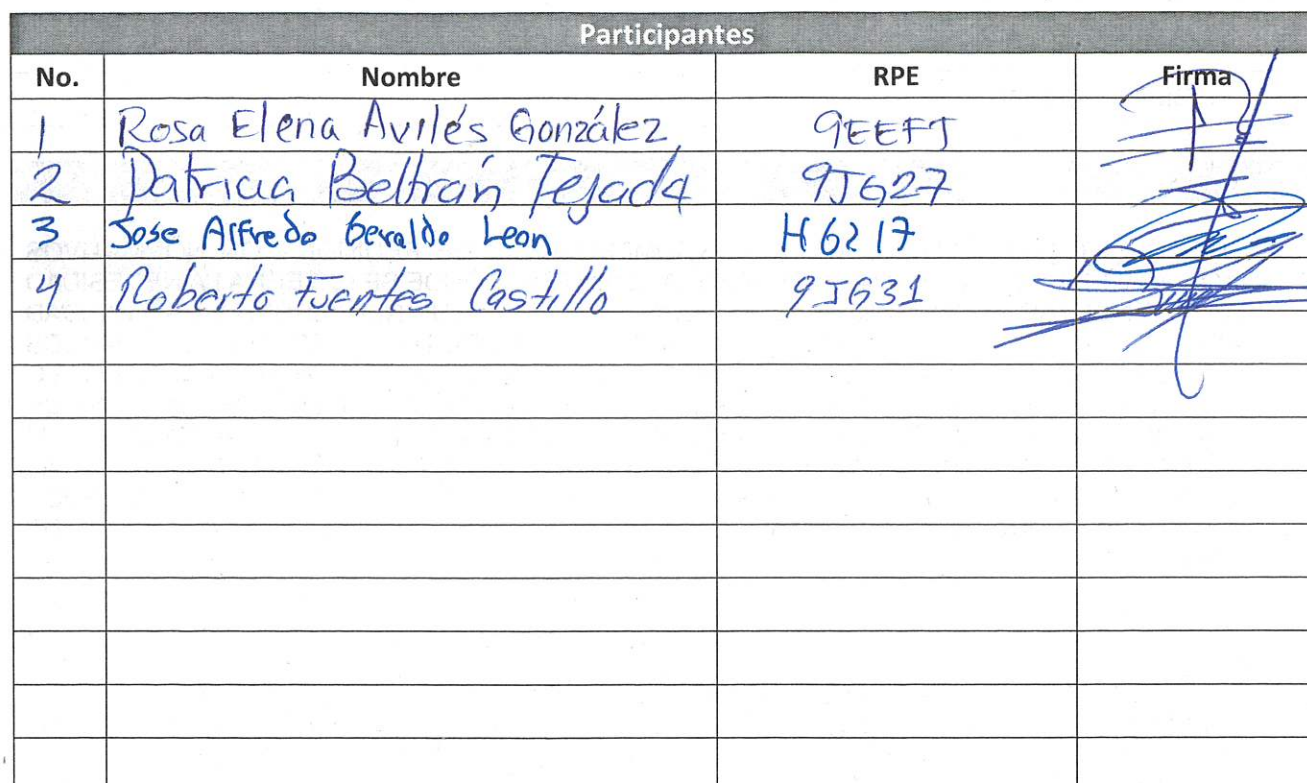 Participantes
No. Nombre RPE Firma
1 Rosa Elena Avilés González 9EEFJ
2 Patricia Beltrán Tejada 9JG27
3 Jose Alfredo Geraldo Leon H6217
4 Roberto Fuentes Castillo 9JG31